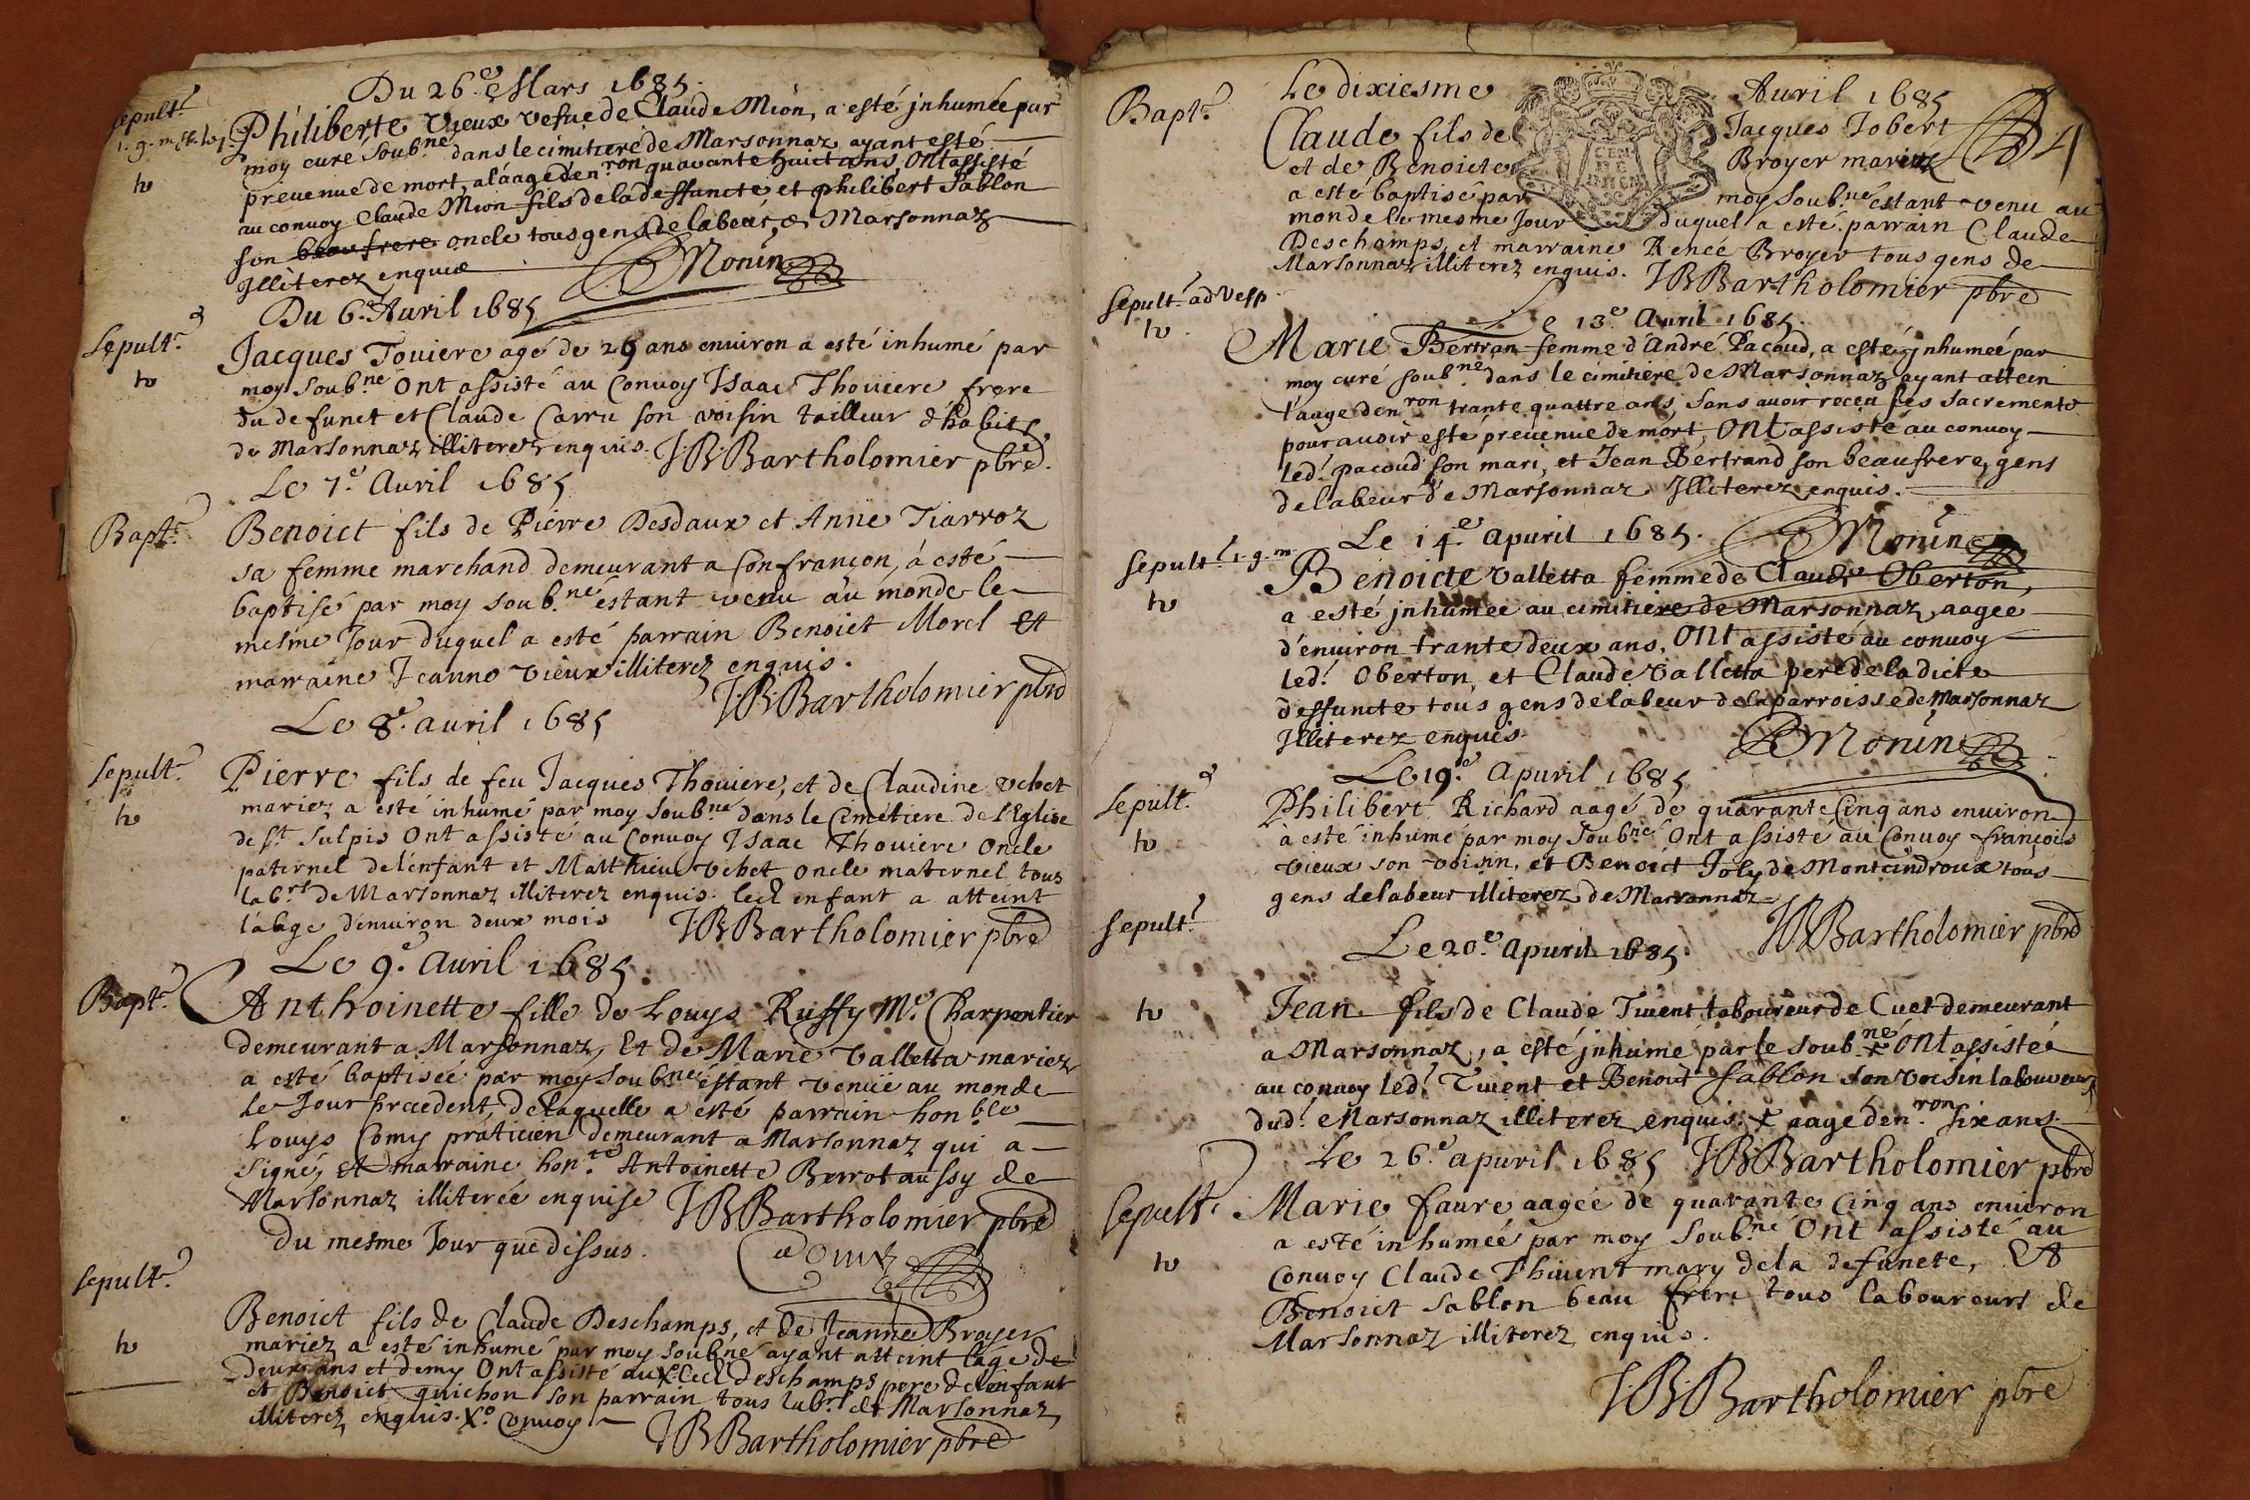 Du 26.e Mars 1685.
Sepult.r
Philiberte Vieux vefue de Claude Mion, a esté jnhumée par
moy curé soub.né dans le cimitiere de Marsonnaz ayant esté
preuenue de mort, a l'aage d'en.ron quarante huict ans, Ont assisté
au conuoy Claude Mion fils de la deffuncte et philibert Sablon
son beaufrere oncle tous gens de labeur, de Marsonnaz
Jlliterez enquis Monin
Du 6.e Auril 1685
Sepult.r
Jacques Touiere agé de 29 ans enuiron a esté inhumé par
moy soub.né Ont assisté au Conuoy Isaac Thouiere frere
du defunct et Claude Carru son voisin tailleur d'habits
de Marsonnaz illiterez enquis. J.B.Bartholomier pbre.
Le 7.e Auril 1685
Bapt.e
Benoict fils de Pierre Desdaux et Anne Tiarroz
sa femme marchand demeurant a Confrançon, a esté
baptisé par moy soub.né estant venu au monde le
mesme Jour duquel a esté parrain Benoict Morel et
marraine Jeanne vieux illiterez enquis.
J.B.Bartholomier pbre
Le 8.e auril 1685
Sepult.r
Pierre fils de feu Jacques Thouiere, et de Claudine Vebet
mariez a esté inhumé par moy soub.né dans le Cimetiere de l'Eglise
de S.t Sulpis Ont assisté au Conuoy Isaac Thouiere Oncle
paternel de l'enfant et Matthieu Vebet oncle maternel tous
lab.rs de Marsonnaz illiterez enquis. led.t enfant a atteint
l'aage d'enuiron deux mois J.B.Bartholomier pbre
Le 9.e Auril 1685.
Bapt.e
Anthoinette fille de Louys Ruffy M.e Charpentier
demeurant a Marsonnaz, Et de Marie Valletta mariez
a esté baptisée par moy soub.né estant venüe au monde
le Jour precedent, de laquelle a esté parrain hon.ble
Louys Comy praticien demeurant a Marsonnaz qui a
signé, et marraine hon.te Antoinette Berrot aussy de
Marsonnaz illiterée enquise J.B.Bartholomier pbre
Du mesme Jour que dessus.
Sepult.r
Benoict fils de Claude Deschamps, et de Jeanne Broyer
mariez a esté inhumé par moy soub.né ayant atteint l'age de
deux ans et demy Ont assisté au X led.t Deschamps pere de l'enfant
et Benoict guichon son parrain tous lab.rs de Marsonnaz
illiterez enquis. X.o Conuoy J.B.Bartholomier pbre
Le dixiesme Auril 1685
Bapt.e
Claude fils de Jacques Jobert
et de Benoicte Broyer mariez
a esté baptisé par moy soub.né estant venu au
monde le mesme Jour duquel a esté parrain Claude
Deschamps et marraine Renée Broyer tous gens de
Marsonnaz illiterez enquis. J.B.Bartholomier pbre
Sepult.r ad Vesp.
Le 13.e Auril 1685.
Marie Bertran femme d'André Pacoud, a esté jnhumeé par
moy curé soub.né dans le cimitiere de Marsonnaz ayant attein
l'aage d'en.ron trante quattre ans, sans auoir receu ses sacrements
pour auoir esté preuenue de mort, Ont assisté au conuoy
led.t pacoud son mari, et Jean Bertrand son beaufrere, gens
de labeur de Marsonnaz Jlliterez enquis.
Le 14.e Apuril 1685. Monin
Sepult.r 1.g.m
Benoicte Valletta femme de Claude Oberton,
a esté jnhumee au cimitiere de Marsonnaz, aagee
d'enuiron trante deux ans, Ont assisté au conuoy
led.t Oberton, et Claude Valletta pere de la dicte
deffuncte tous gens de labeur de la parroisse de Marsonnaz
Jlliterez enquis Monin
Le 19.e Apuril 1685
Sepult.r
Philibert Richard aagé de quarante Cinq ans enuiron
a esté inhumé par moy soub.né Ont assisté au Conuoy françois
vieux son voisin, et Benoict Joly de Montcindroux tous
gens de labeur illiterez de Marsonnaz
J.B.Bartholomier pbre
Sepult.r
Le 20.e Apuril 1685.
Jean fils de Claude Tiuent laboureur de Cuet demeurant
a Marsonnaz, a esté jnhumé par le soub.né X Ont assisté
au conuoy led.t Tiuent et Benoict Sablon son voisin laboureur
dud.t Marsonnaz illiterez enquis. X aagé d'en.ron six ans
Le 26.e apuril 1685 J.B.Bartholomier pbre
Sepult.r
Marie faure aagée de quarante Cinq ans enuiron
a esté inhumeé par moy soub.né Ont assisté au
Conuoy Claude Thiuent mary de la defuncte, Et
Benoict Sablon beau frere tous laboureurs de
Marsonnaz illiterez enquis.
J.B.Bartholomier pbre